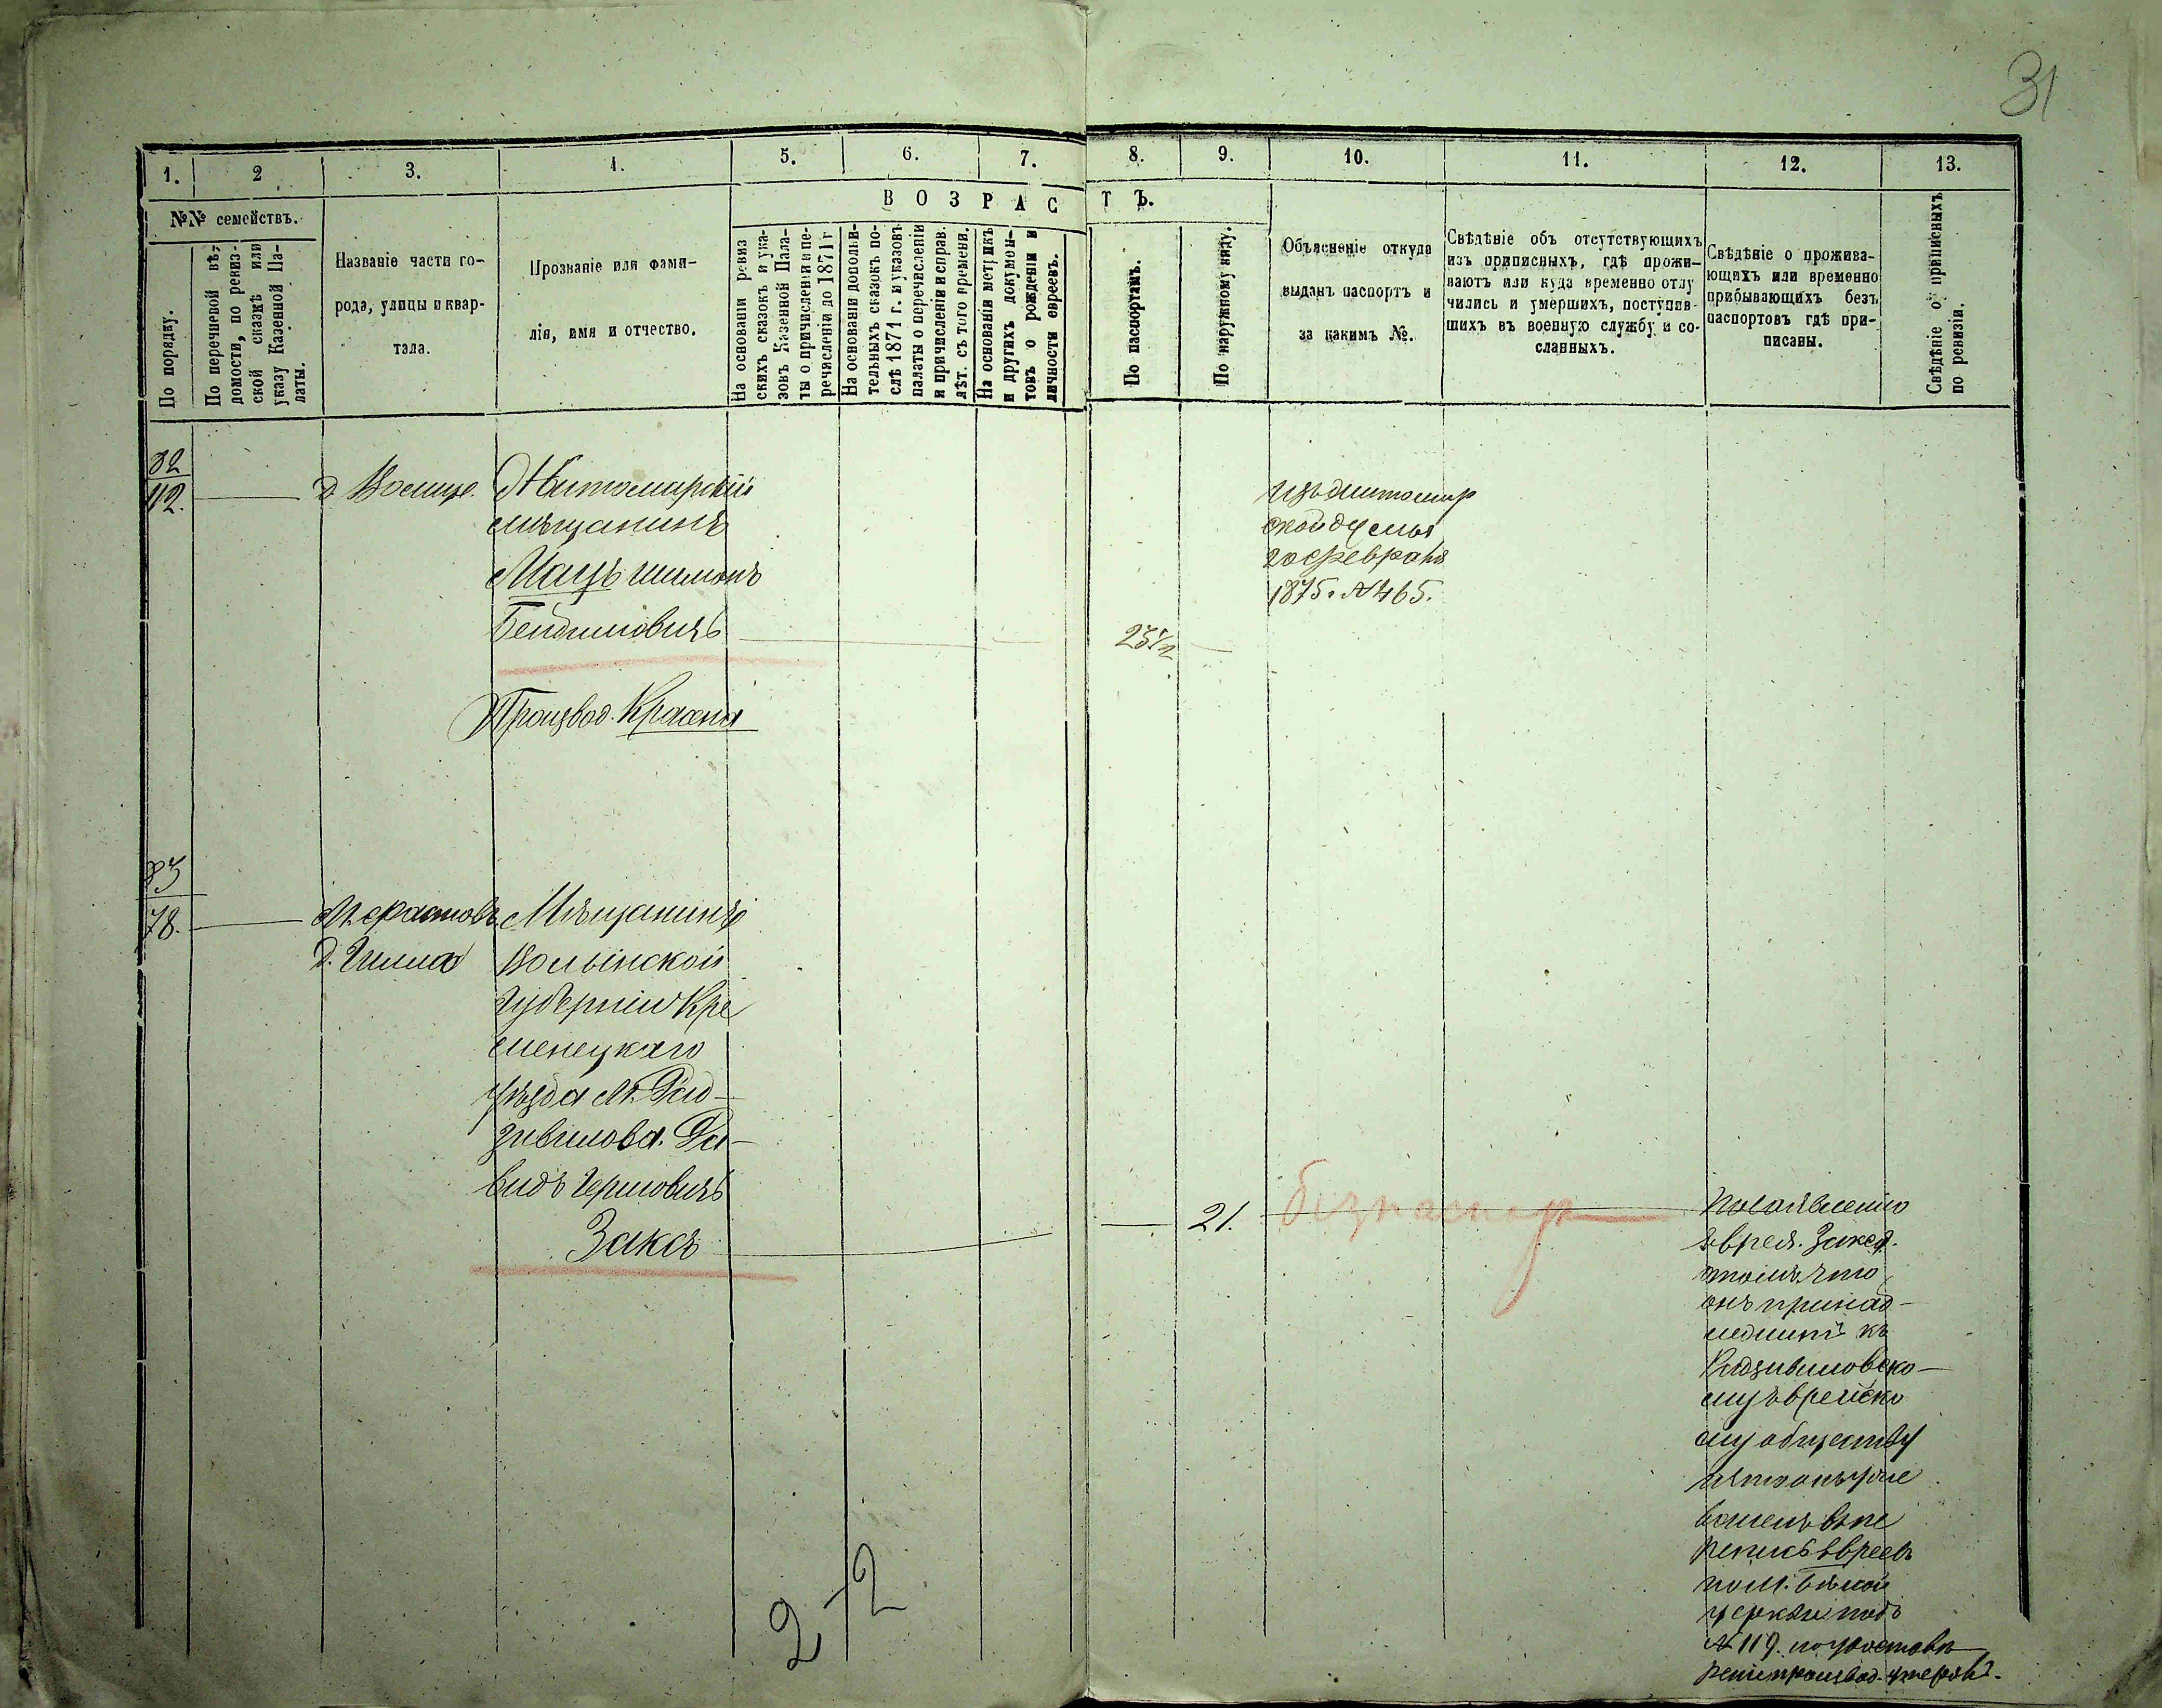 31
1. 2 3. 4. 5. 6. 7. 8. 9. 10. 11. 12. 13.
№№ семействъ.
По порядку.
По перечневой вѣ-
домости, по ревиз-
ской сказкѣ или
указу Казенной Па-
латы.
Названіе части го-
рода, улицы и квар-
тала.
Прозваніе или фами-
лія, имя и отчество.
ВОЗРАСТЪ.
На основаніи ревиз
скихъ сказокъ и ука-
зовъ Казенной Пала-
ты о причисленіи и пе-
речисленіи до 1871 г
На основаніи дополни-
тельныхъ сказокъ по-
слѣ 1871 г. и указовъ
палаты о перечисленіи
и причисленіи и справ.
лѣт. съ того времени.
На основаніи метрикъ
и другихъ докумен-
товъ о рожденіи и
личности евреевъ.
По паспортамъ.
По наружному виду.
Объясненіе откуда
выданъ паспортъ и
за какимъ №.
Свѣдѣніе объ отсутствующихъ
изъ приписныхъ, гдѣ прожи-
ваютъ или куда временно отлу
чились и умершихъ, поступив-
шихъ въ военную службу и со-
сланныхъ.
Свѣдѣніе о прожива-
ющихъ или временно
прибывающихъ безъ
паспортовъ гдѣ при-
писаны.
Свѣдѣніе о приписныхъ
по ревизіи.
82
112.
Житомирскій
мѣщанинъ
Мацъ Шимонъ
25 1/2
Из Житомир
ской думы
20 февраля
1875. №465.
Производ. Красна
83
78.
М. Фастовъ
Мѣщанинъ
Волынской
губерніи Кре
менецкаго
уѣзда М. Рад-
зивилова. Да-
видъ Гершовичъ
Заксъ
21.
без паспор
По заявленію
еврея. Закса.
томъ что
онъ принад-
лежитъ къ
Радзивиловско-
му еврейско
му обществу
евреевъ
по м. Бѣлой
церкви подъ
№ 119.
2-2